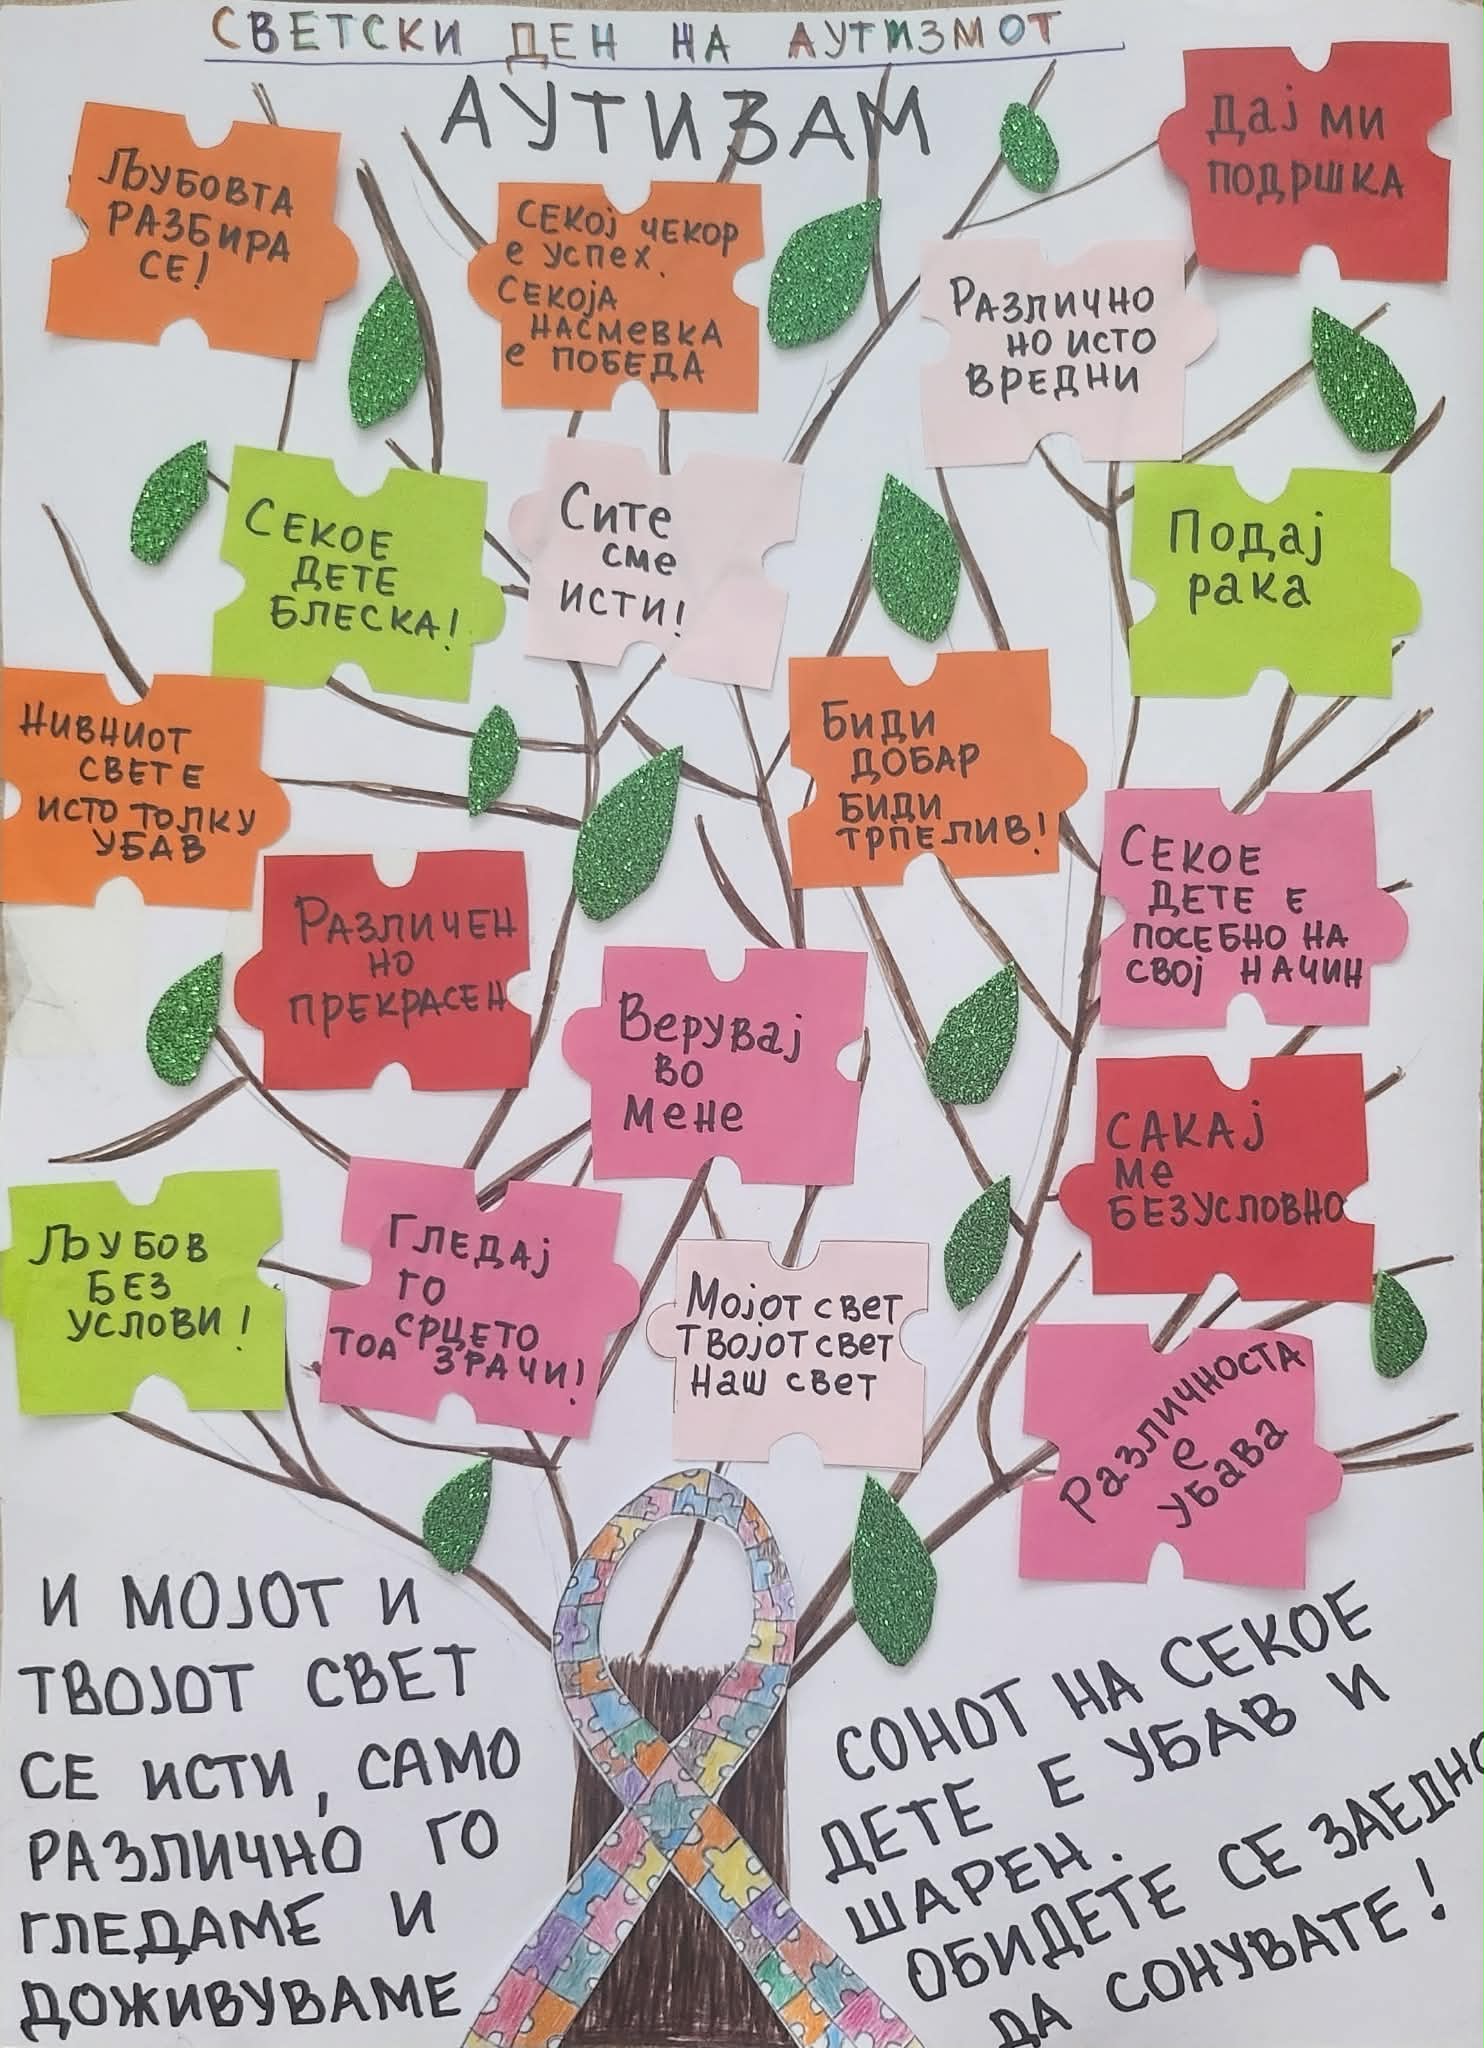 СВЕТСКИ ДЕН НА АУТИЗМОТ
АУТИЗАМ
ЉУБОВТА
РАЗБИРА
СЕ!
СЕКОЈ ЧЕКОР
е УСПЕХ.
СЕКОЈА
НАСМЕВКА
е ПОБЕДА
Дај ми
подршка
РАЗЛИЧНО
НО ИСТО
ВРЕДНИ
СЕКОЕ
ДЕТЕ
БЛЕСКА!
Сите
сме
исти!
Подај
рака
НИВНИОТ
СВЕТ Е
ИСТО ТОЛКУ
УБАВ
БИДИ
ДОБАР
БИДИ
ТРПЕЛИВ!
СЕКОЕ
ДЕТЕ Е
ПОСЕБНО НА
СВОЈ НАЧИН
РАЗЛИЧЕН
НО
ПРЕКРАСЕН
Верувај
во
мене
САКАЈ
Ме
БЕЗУСЛОВНО
ЉУБОВ
БЕЗ
УСЛОВИ!
ГЛЕДАЈ
ГО
СРЦЕТО
ТОА ЗРАЧИ!
Мојот свет
Твојот свет
Наш свет
РАЗЛИЧНОСТА
е
убава
И МОЈОТ И
ТВОЈОТ СВЕТ
СЕ ИСТИ, САМО
РАЗЛИЧНО ГО
ГЛЕДАМЕ И
ДОЖИВУВАМЕ
СОНОТ НА СЕКОЕ
ДЕТЕ Е УБАВ И
ШАРЕН.
ОБИДЕТЕ СЕ ЗАЕДНО
ДА СОНУВАТЕ!